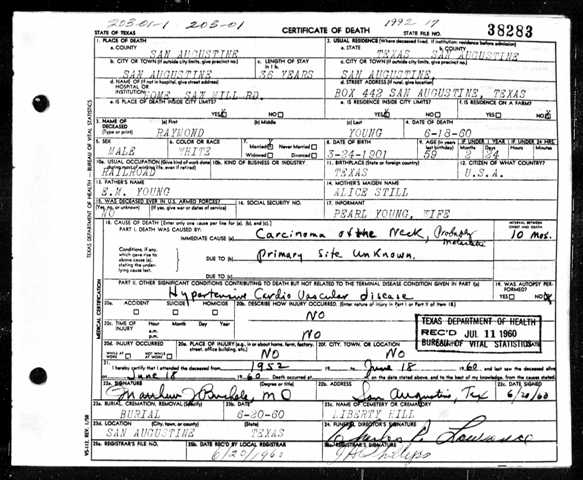 203-01-1 203-01
1992 17
STATE OF TEXAS CERTIFICATE OF DEATH STATE FILE NO. 38283
1. PLACE OF DEATH 2. USUAL RESIDENCE (Where deceased lived. If institution: residence before admission)
a. COUNTY SAN AUGUSTINE a. STATE TEXAS b. COUNTY SAN AUGUSTINE
b. CITY OR TOWN (If outside city limits, give precinct no.) c. LENGTH OF STAY in 1 b. c. CITY OR TOWN (If outside city limits, give precinct no.)
SAN AUGUSTINE 36 YEARS SAN AUGUSTINE,
d. NAME OF (If not in hospital, give street address) HOSPITAL OR INSTITUTION d. STREET ADDRESS (If rural, give location)
HOME, SAW MILL RD. BOX 442 SAN AUGUSTINE, TEXAS
e. IS PLACE OF DEATH INSIDE CITY LIMITS? e. IS RESIDENCE INSIDE CITY LIMITS? f. IS RESIDENCE ON A FARM?
YES NO YES NO YES NO
3. NAME OF DECEASED (Type or print) (a) First (b) Middle (c) Last 4. DATE OF DEATH
RAYMOND YOUNG 6-18-60
5. SEX 6. COLOR OR RACE 7. Married Never Married 8. DATE OF BIRTH 9. AGE (In years last birthday) IF UNDER 1 YEAR IF UNDER 24 HRS.
MALE WHITE Widowed Divorced 3-24-1901 59 2 24
10a. USUAL OCCUPATION (Give kind of work done during most of working life, even if retired) 10b. KIND OF BUSINESS OR INDUSTRY 11. BIRTHPLACE (State or foreign country) 12. CITIZEN OF WHAT COUNTRY?
RAILROAD TEXAS U.S.A.
13. FATHER'S NAME 14. MOTHER'S MAIDEN NAME
E.W. YOUNG ALICE STILL
15. WAS DECEASED EVER IN U.S. ARMED FORCES? 16. SOCIAL SECURITY NO. 17. INFORMANT
(Yes, no, or unknown) (If yes, give war or dates of service)
NO PEARL YOUNG, WIFE
18. CAUSE OF DEATH (Enter only one cause per line for (a), (b), and (c).) INTERVAL BETWEEN ONSET AND DEATH
PART I. DEATH WAS CAUSED BY:
IMMEDIATE CAUSE (a) Carcinoma of the Neck, probably metastatic 10 mos.
Conditions, if any, which gave rise to above cause (a), stating the underlying cause last.
DUE TO (b) Primary Site Unknown.
DUE TO (c)
PART II. OTHER SIGNIFICANT CONDITIONS CONTRIBUTING TO DEATH BUT NOT RELATED TO THE TERMINAL DISEASE CONDITION GIVEN IN PART I(a) 19. WAS AUTOPSY PERFORMED?
Hypertensive Cardio Vascular disease YES NO
20a. ACCIDENT SUICIDE HOMICIDE 20b. DESCRIBE HOW INJURY OCCURRED. (Enter nature of injury in Part I or Part II of item 18.)
NO
20c. TIME OF INJURY Hour Month Day Year
a.m. p.m. NO
TEXAS DEPARTMENT OF HEALTH
REC'D JUL 11 1960
BUREAU OF VITAL STATISTICS
20d. INJURY OCCURRED 20e. PLACE OF INJURY (e.g., in or about home, farm, factory, street, office building, etc.) 20f. CITY, TOWN, OR LOCATION
WHILE AT WORK NOT WHILE AT WORK NO NO
21. I hereby certify that I attended the deceased from 1952 to June 18 1960 and last saw the deceased alive
on June 18 1960. Death occurred at on the date stated above, and to the best of my knowledge, from the causes stated.
22a. SIGNATURE (Degree or title) 22b. ADDRESS 22c. DATE SIGNED
M.D. San Augustine, Tex 6/20/60
23a. BURIAL, CREMATION, REMOVAL (Specify) 23b. DATE 23c. NAME OF CEMETERY OR CREMATORY
BURIAL 6-20-60 LIBERTY HILL
23d. LOCATION (City, town, or county) (State) 24. FUNERAL DIRECTOR'S SIGNATURE
SAN AUGUSTINE TEXAS
25a. REGISTRAR'S FILE NO. 25b. DATE REC'D BY LOCAL REGISTRAR 25c. REGISTRAR'S SIGNATURE
6/20/1960
TEXAS DEPARTMENT OF HEALTH - BUREAU OF VITAL STATISTICS
MEDICAL CERTIFICATION
REV. 1/58